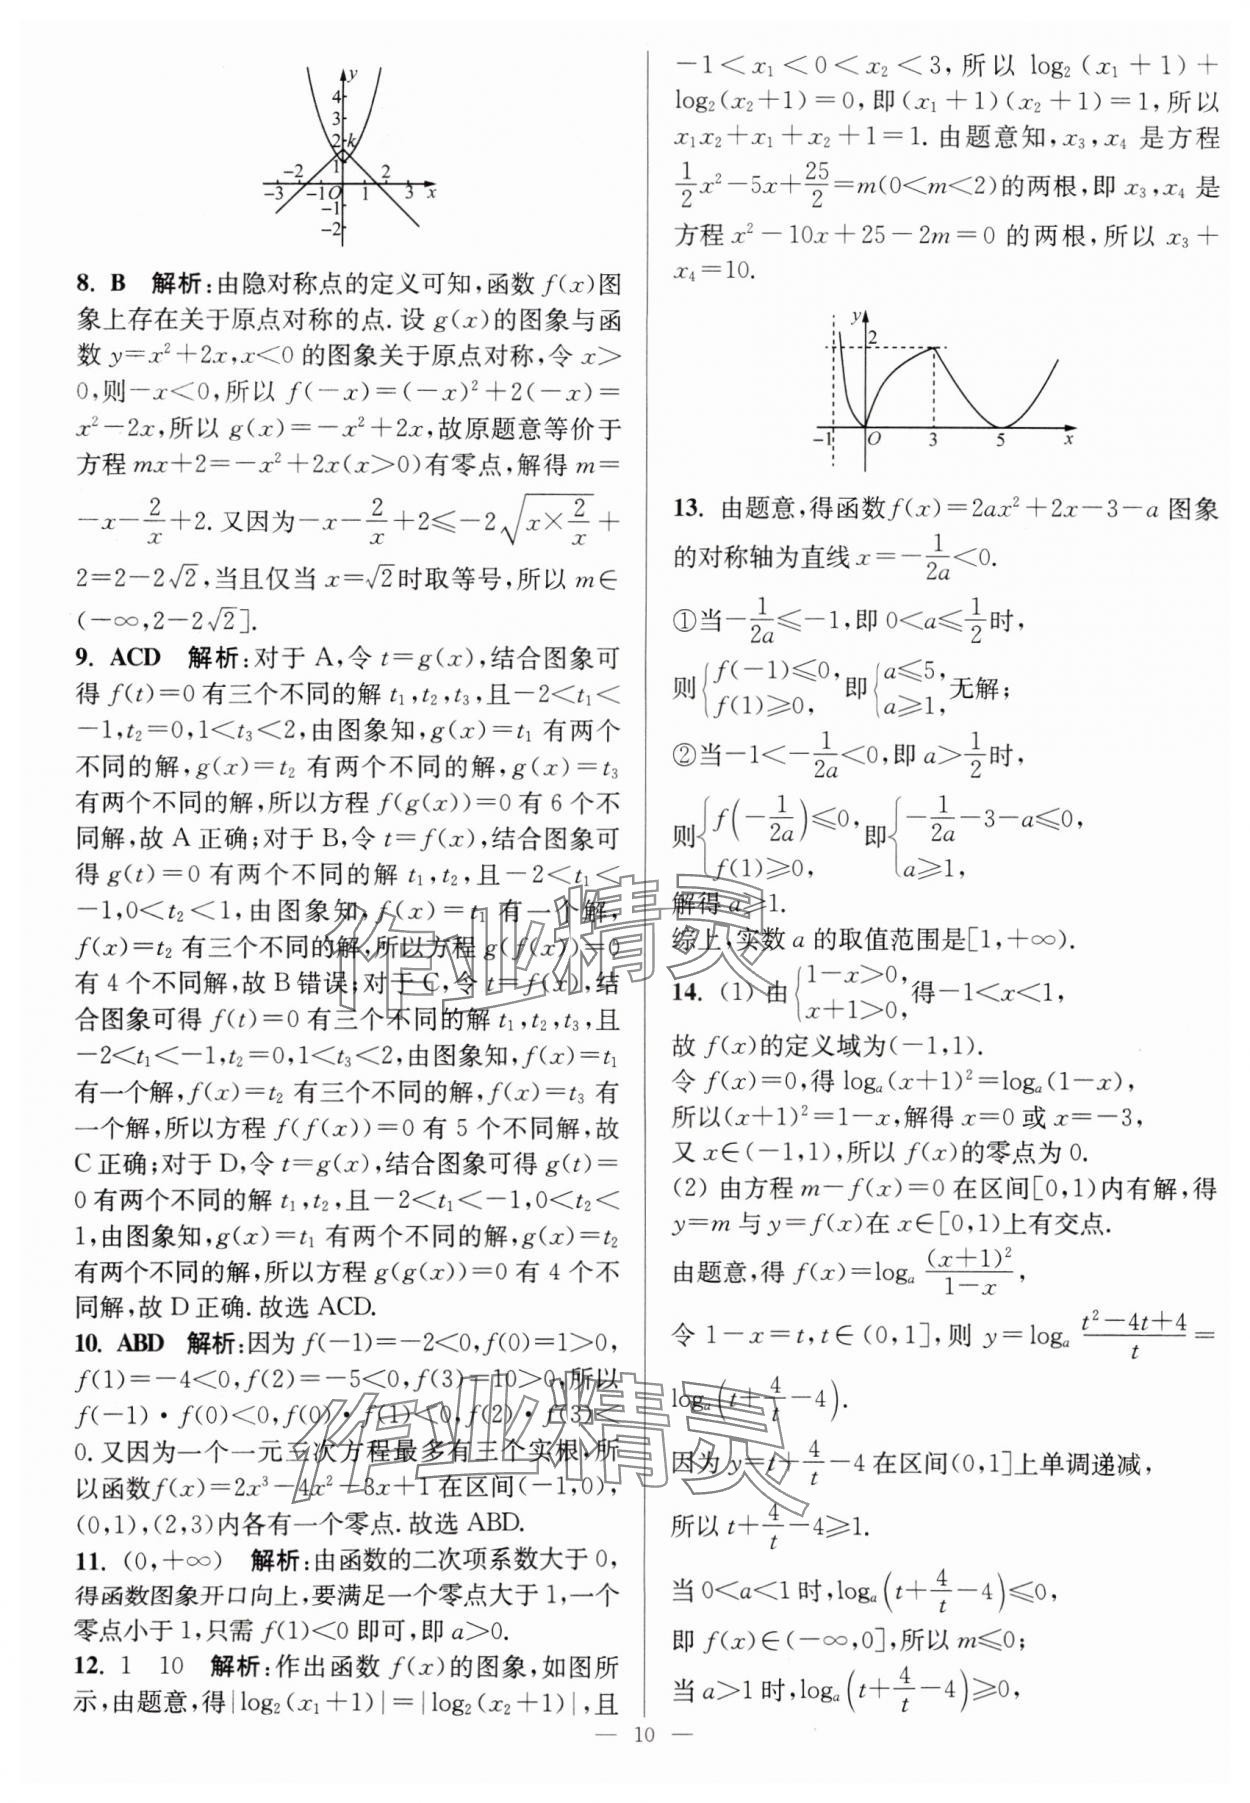 8. B 解析:由隐对称点的定义可知,函数 f(x)图
象上存在关于原点对称的点. 设 g(x)的图象与函
数 y=x²+2x,x<0 的图象关于原点对称,令 x>
0,则−x<0,所以 f(−x)=(−x)²+2(−x)=
x²−2x,所以 g(x)=−x²+2x,故原题意等价于
方程 mx+2=−x²+2x(x>0)有零点,解得 m=
−x−2/x+2. 又因为−x−2/x+2≤−2√(x×2/x)+
2=2−2√2,当且仅当 x=√2时取等号,所以 m∈
(−∞,2−2√2].
9. ACD 解析:对于 A,令 t=g(x),结合图象可
得 f(t)=0 有三个不同的解 t₁,t₂,t₃,且−2<t₁<
−1,t₂=0,1<t₃<2,由图象知,g(x)=t₁ 有两个
不同的解,g(x)=t₂ 有两个不同的解,g(x)=t₃
有两个不同的解,所以方程 f(g(x))=0有 6 个不
同解,故 A 正确;对于 B,令 t=f(x),结合图象可
得 g(t)=0 有两个不同的解 t₁,t₂,且−2<t₁<
−1,0<t₂<1,由图象知,f(x)=t₁ 有一个解,
f(x)=t₂ 有三个不同的解,所以方程 g(f(x))=0
有 4 个不同解,故 B 错误;对于 C,令 t=f(x),结
合图象可得 f(t)=0 有三个不同的解 t₁,t₂,t₃,且
−2<t₁<−1,t₂=0,1<t₃<2,由图象知,f(x)=t₁
有一个解,f(x)=t₂ 有三个不同的解,f(x)=t₃ 有
一个解,所以方程 f(f(x))=0 有 5 个不同解,故
C 正确;对于 D,令 t=g(x),结合图象可得 g(t)=
0 有两个不同的解 t₁,t₂,且−2<t₁<−1,0<t₂<
1,由图象知,g(x)=t₁ 有两个不同的解,g(x)=t₂
有两个不同的解,所以方程 g(g(x))=0 有 4 个不
同解,故 D 正确. 故选 ACD.
10. ABD 解析:因为 f(−1)=−2<0,f(0)=1>0,
f(1)=−4<0,f(2)=−5<0,f(3)=10>0,所以
f(−1)·f(0)<0,f(0)·f(1)<0,f(2)·f(3)<
0. 又因为一个一元三次方程最多有三个实根,所
以函数f(x)=2x³−4x²−3x+1 在区间(−1,0),
(0,1),(2,3)内各有一个零点. 故选 ABD.
11. (0,+∞) 解析:由函数的二次项系数大于 0,
得函数图象开口向上,要满足一个零点大于 1,一个
零点小于 1,只需 f(1)<0 即可,即 a>0.
12. 1 10 解析:作出函数 f(x)的图象,如图所
示,由题意,得|log₂(x₁+1)|=|log₂(x₂+1)|,且
−1<x₁<0<x₂<3,所以 log₂(x₁+1)+
log₂(x₂+1)=0,即(x₁+1)(x₂+1)=1,所以
x₁x₂+x₁+x₂+1=1. 由题意知,x₃,x₄ 是方程
1/2x²−5x+25/2=m(0<m<2)的两根,即 x₃,x₄ 是
方程 x²−10x+25−2m=0 的两根,所以 x₃+
x₄=10.
13. 由题意,得函数f(x)=2ax²+2x−3−a 图象
的对称轴为直线 x=−1/2a<0.
①当−1/2a≤−1,即 0<a≤1/2时,
则{f(−1)≤0, f(1)≥0, 即{a≤5, a≥1, 无解;
②当−1<−1/2a<0,即 a>1/2时,
则{f(−1/2a)≤0, f(1)≥0, 即{−1/2a−3−a≤0, a≥1,
解得 a≥1.
综上,实数 a 的取值范围是[1,+∞).
14. (1) 由{1−x>0, x+1>0, 得−1<x<1,
故 f(x)的定义域为(−1,1).
令 f(x)=0,得 logₐ(x+1)²=logₐ(1−x),
所以(x+1)²=1−x,解得 x=0 或 x=−3,
又 x∈(−1,1),所以 f(x)的零点为 0.
(2) 由方程 m−f(x)=0 在区间[0,1)内有解,得
y=m 与 y=f(x)在 x∈[0,1)上有交点.
由题意,得 f(x)=logₐ (x+1)²/1−x,
令 1−x=t,t∈(0,1],则 y=logₐ t²−4t+4/t=
logₐ(t+4/t−4).
因为 y=t+4/t−4 在区间(0,1]上单调递减,
所以 t+4/t−4≥1.
当 0<a<1 时,logₐ(t+4/t−4)≤0,
即 f(x)∈(−∞,0],所以 m≤0;
当 a>1 时,logₐ(t+4/t−4)≥0,
— 10 —
作业精灵
作业精灵